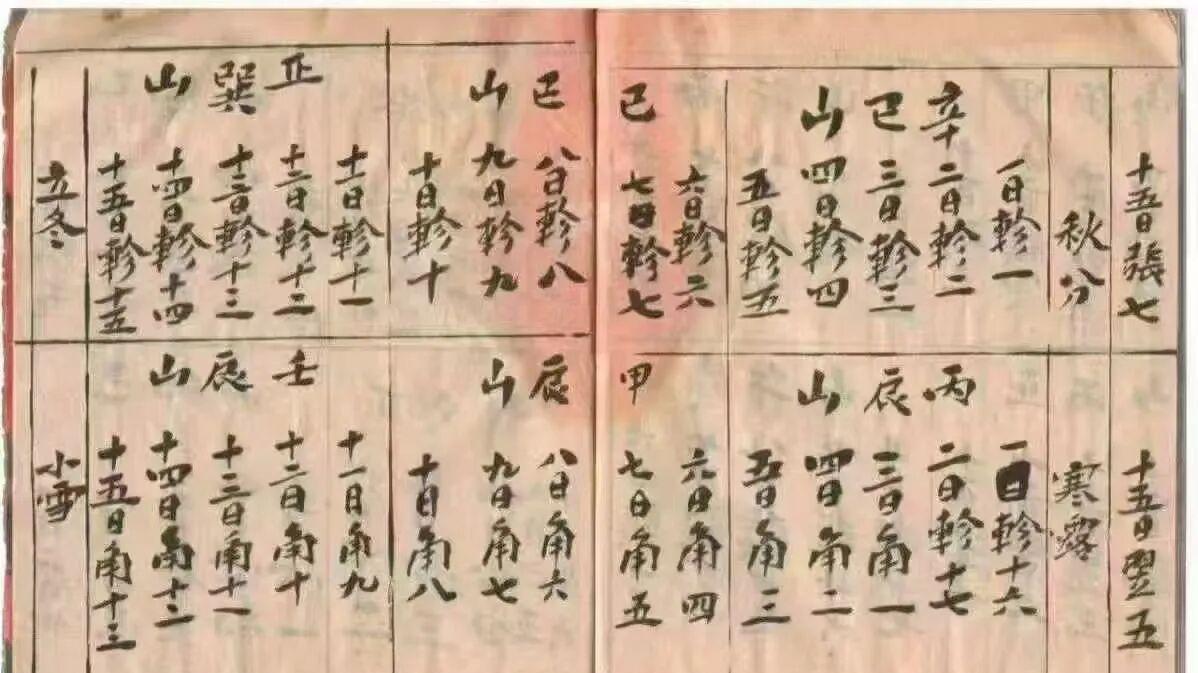 十五日張七
秋分
一日軫一
辛二日軫二
巳三日軫三
山四日軫四
五日軫五
六日軫六
巳七日軫七
巳八日軫八
山九日軫九
十日軫十
十一日軫十一
正十二日軫十二
巽十三日軫十三
山十四日軫十四
十五日軫十五
立冬
十五日翌五
寒露
一日軫十六
丙二日軫十七
辰三日角一
山四日角二
五日角三
六日角四
甲七日角五
辰八日角六
山九日角七
十日角八
十一日角九
壬十二日角十
辰十三日角十一
山十四日角十二
十五日角十三
小雪